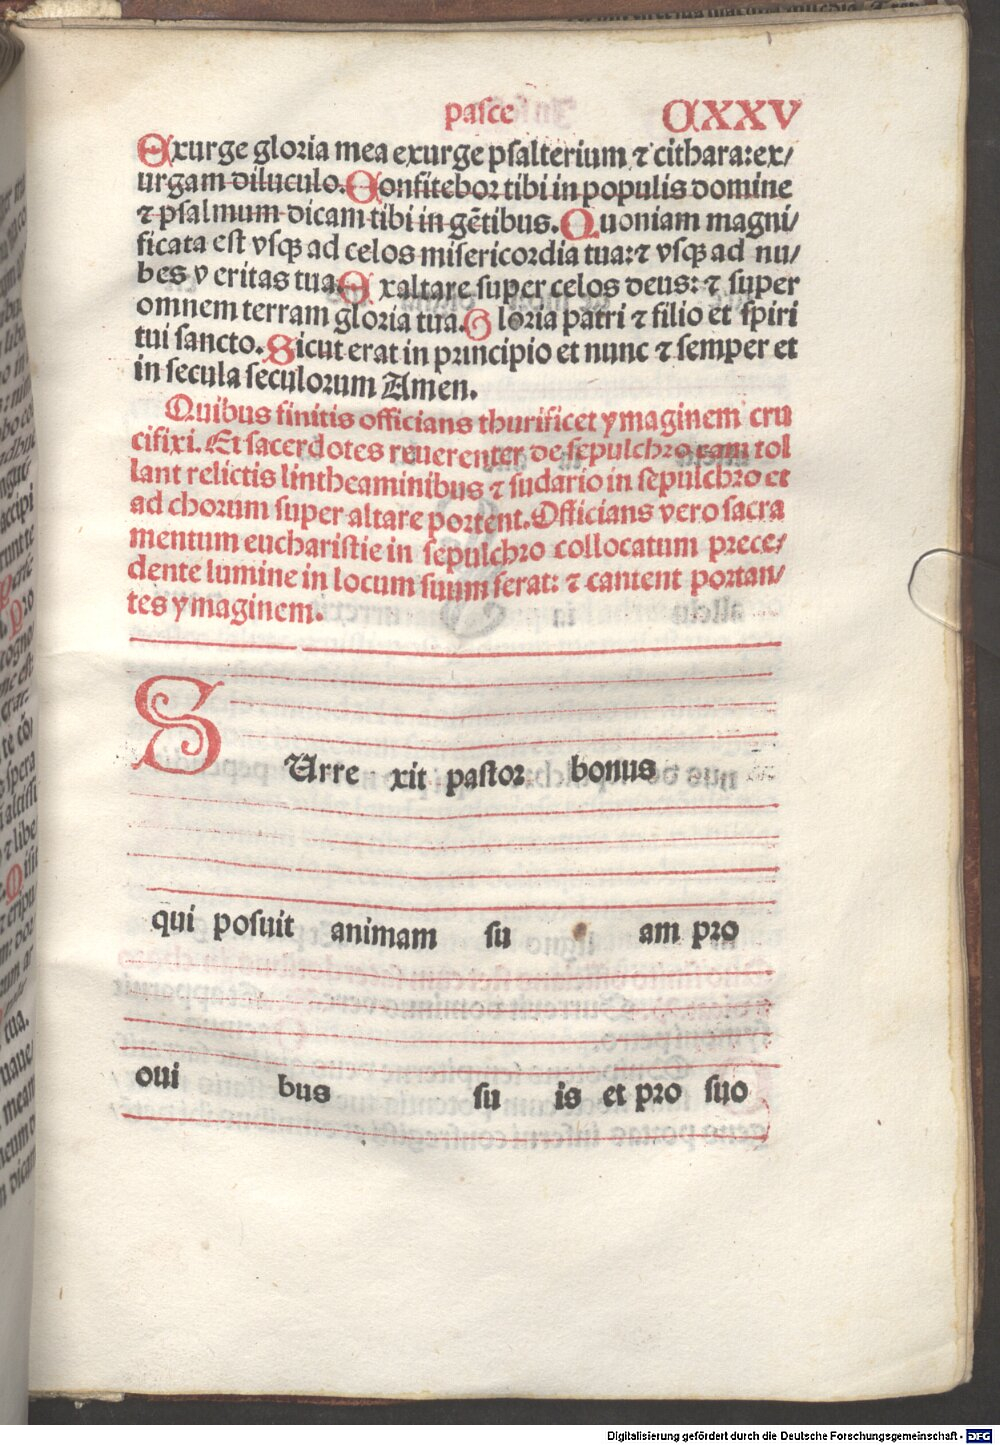 pasce CXXV
Exurge gloria mea exurge psalterium ⁊ cithara: ex/
urgam diluculo. Confitebor tibi in populis domine
⁊ psalmum dicam tibi in gẽtibus. Quoniam magni/
ficata est vsqꝫ ad celos misericordia tua: ⁊ vsqꝫ ad nu/
bes veritas tua. Exaltare super celos deus: ⁊ super
omnem terram gloria tua. Gloria patri ⁊ filio et spiri
tui sancto. Sicut erat in principio et nunc ⁊ semper et
in secula seculorum Amen.
Quibus finitis officians thurificet ymaginem cru
cifixi. Et sacerdotes reuerenter de sepulchro eam tol
lant relictis lintheaminibus ⁊ sudario in sepulchro et
ad chorum super altare portent. Officians vero sacra
mentum eucharistie in sepulchro collocatum prece/
dente lumine in locum suum ferat: ⁊ cantent portan/
tes ymaginem.
SUrre xit pastor bonus
qui posuit animam su am pro
oui bus su is et pro suo
Digitalisierung gefördert durch die Deutsche Forschungsgemeinschaft - DFG